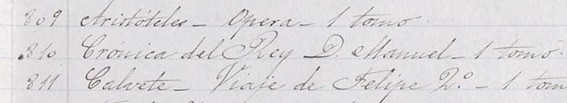 809 Aristóteles - Opera - 1 tomo.
810 Cronica del Rey D. Manuel - 1 tomo.
811 Calvete - Viaje de Felipe 2º - 1 tom